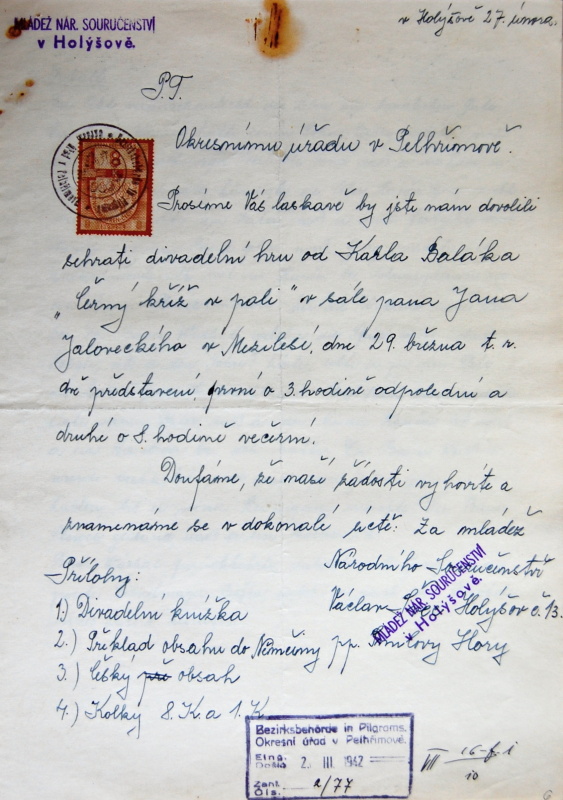 MLÁDEŽ NÁR. SOURUČENSTVÍ
v Holýšově.
v Holýšově 27 února.
P.T.
Okresnímu úřadu v Pelhřimově.
Prosíme Vás laskavě by jste nám dovolili
sehrati divadelní hru od Karla Baláka
"Černý kříž v poli" v sále pana Jana
Jaloveckého v Mezilesí, dne 29. března t. r.
dvě představení, první o 3. hodině odpolední a
druhé o 8. hodině večerní.
Doufáme, že naší žádosti vyhovíte a
znamenáme se v dokonalé úctě: Za mládež
Národního Souručenství
Václav Holýšov č. 13.
MLÁDEŽ NÁR. SOURUČENSTVÍ
v Holýšově.
pp. Hory
Přílohy:
1.) Divadelní knížka
2.) Příklad obsahu do Němčiny
3.) Český obsah
4.) Kolky 8. K a 1. K
Bezirksbehörde in Pilgrams.
Okresní úřad v Pelhřimově.
Eing.
Došlo 2. III. 1942
Čís. 2/77